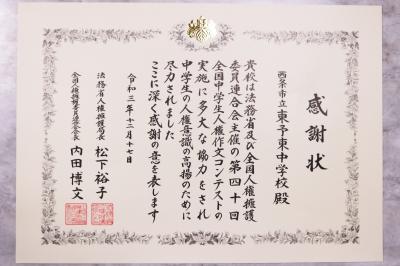 感謝状
西条市立東予東中学校殿
貴校は法務省及び全国人権擁護
委員連合会主催の第四十回
全国中学生人権作文コンテストの
実施に多大な協力をされ
中学生の人権意識の高揚のために
尽力されました
ここに深く感謝の意を表します
令和三年十二月十七日
法務省人権擁護局長 松下裕子
全国人権擁護委員連合会長 内田博文